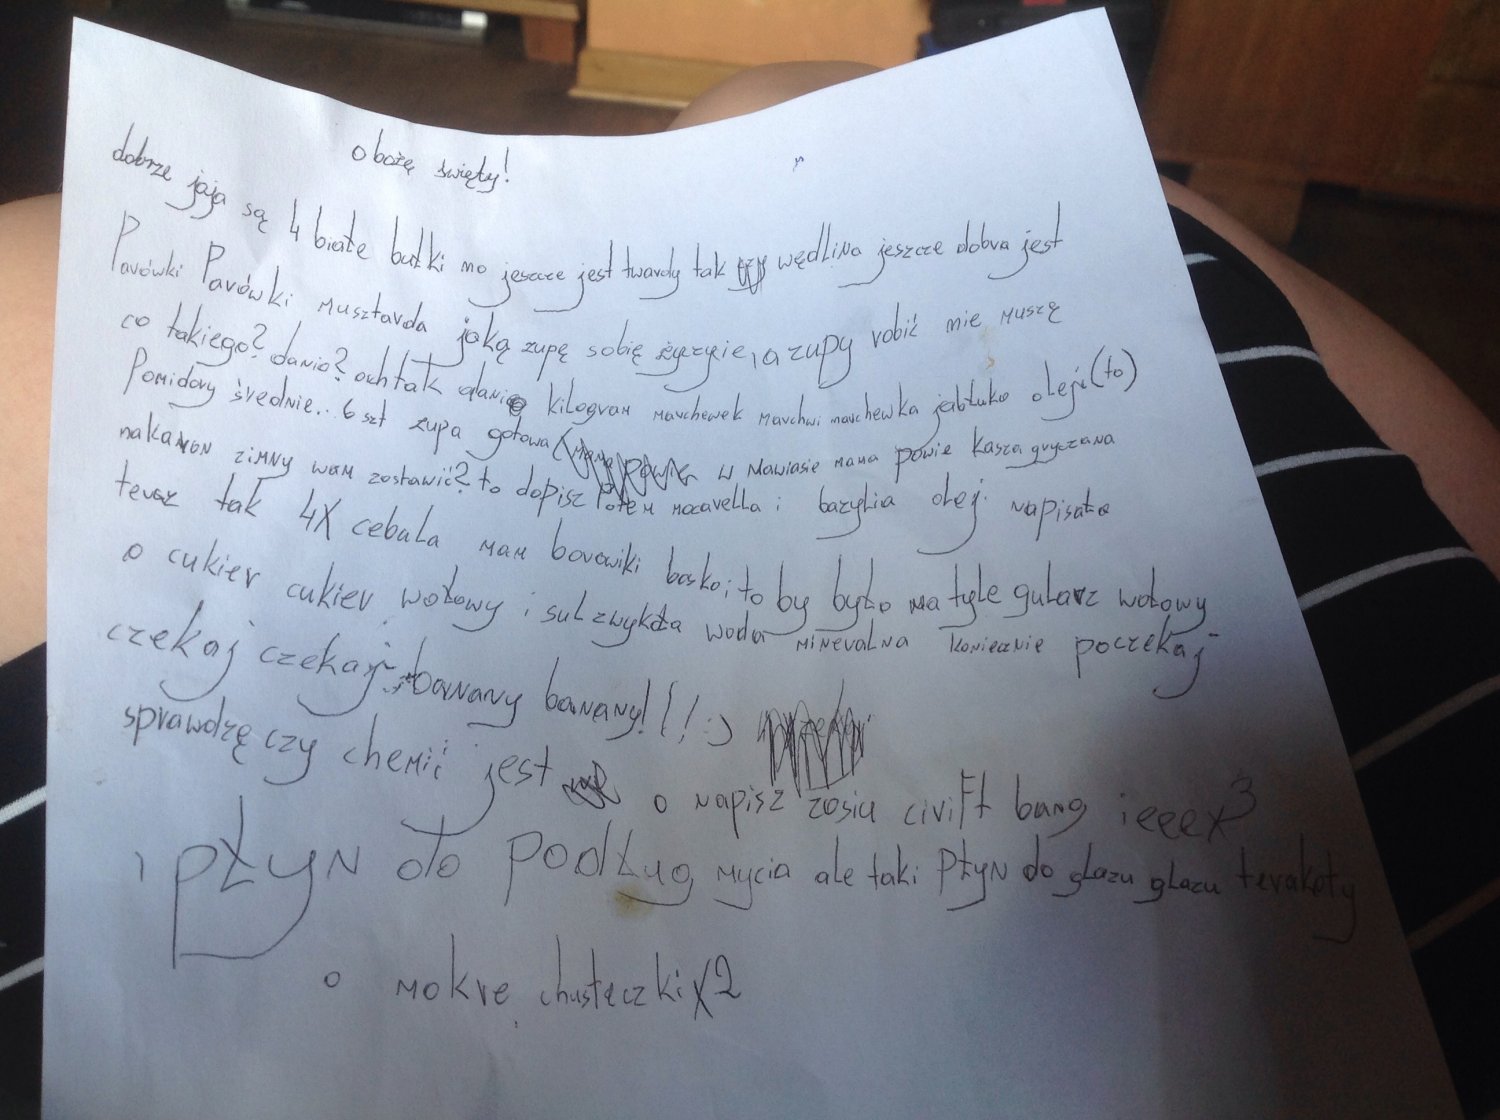 o boże święty!
dobrze jaja są 4 białe bułki no jeszcze jest twardy tak wędlina jeszcze dobra jest
Parówki Parówki musztarda jaką zupę sobię życzycie, a zupy robić nie muszę
co takiego? danio? och tak danio kilogram marchewek marchwi marchewka jabłuko oleji (to)
Pomidory średnie.. 6 szt zupa gotowa ( w nawiasie mama powie kasza gryczana
makaron zimny wam zostawić? to dopisz Potem mozarella i bazylia olej napisała
teraz tak 4X cebula mam borowiki bosko; to by było na tyle gularz wołowy
o cukier cukier wołowy i sul zwykła woda minevalna koniecznie poczekaj
czekaj czekaj banany banany!!! :)
sprawdzę czy chemić jest o napisz zosiu civift bang ieeex3
i płyn do podług mycia ale taki płyn do glazu glazu terakoty
o mokre chustęczki X2